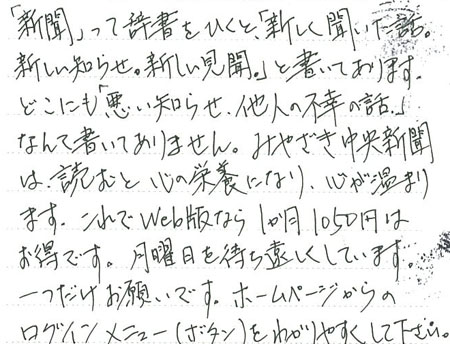 「新聞」って辞書をひくと、「新しく聞いた話。
新しい知らせ。新しい見聞。」と書いてあります。
どこにも「悪い知らせ、他人の不幸の話。」
なんて書いてありません。みやざき中央新聞
は、読むと心の栄養になり、心が温まり
ます。これでWeb版なら1か月1050円は
お得です。月曜日を待ち遠しくしています。
一つだけお願いです。ホームページからの
ログインメニュー(ボタン)をわかりやすくして下さい。